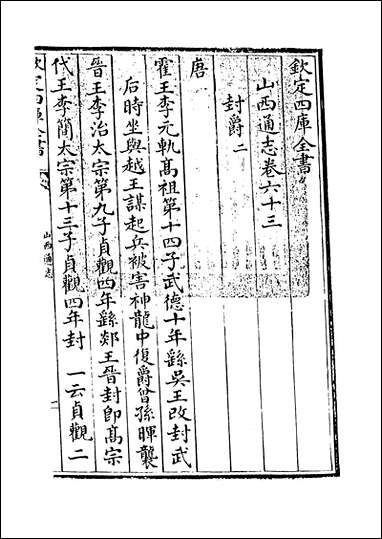 欽定四庫全書
山西通志卷六十三
封爵二
唐
霍王李元軌髙祖第十四子武德十年繇吳王改封武
后時坐與越王謀起兵被害神龍中復爵曾孫暉襲
晉王李治太宗第九子貞觀四年繇郯王晉封即髙宗
代王李簡太宗第十三子貞觀四年封 一云貞觀二
欽定四庫全書
山西通志
一